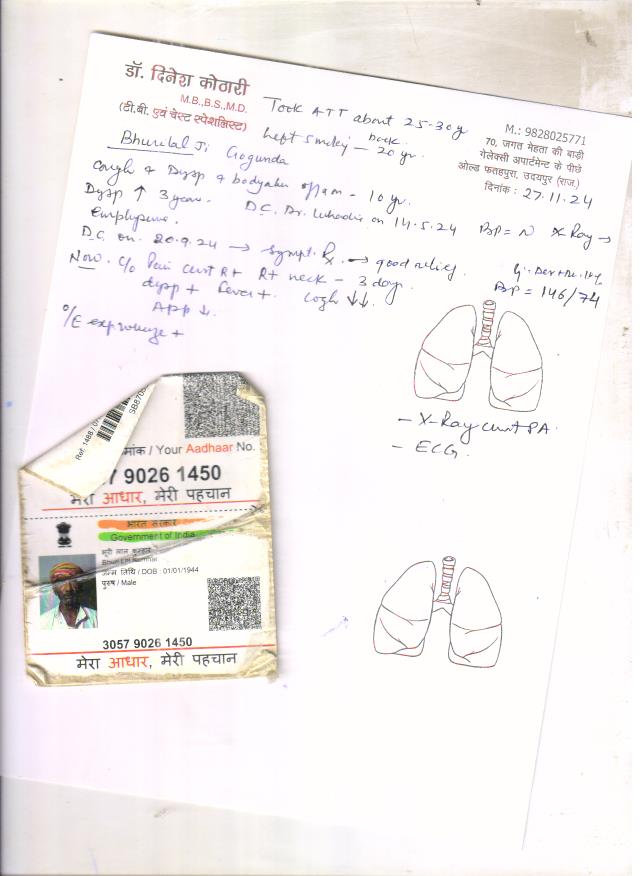 डॉ. दिनेश कोठारी
M.B.,B.S.,M.D.
(टी.बी. एवं चेस्ट स्पेशलिस्ट)
Took ATT about 25-30y
back.
Left smoking — 20 yr.
M.: 9828025771
70, जगत मेहता की बाड़ी
गेलेक्सी अपार्टमेन्ट के पीछे
ओल्ड फतहपुरा, उदयपुर (राज.)
दिनांक : 27.11.24
Bhurilal Ji Gogunda
Cough + Dysp + bodyache — 10 yr.
Dysp ↑ 3 years. D.C. Dr. Luhadia on 14.5.24 BP = N X Ray →
Emphysema.
D.C. on. 20.9.24 → Sympt. Rx. → good relief.
BP = 146/74
Now. C/o Pain chest Rt Rt neck — 3 days
dysp + fever +. Cough ↓↓.
App ↓.
O/E exp wheeze +
- X-Ray chest PA
- ECG.
Your Aadhaar No.
7 9026 1450
मेरा आधार, मेरी पहचान
भारत सरकार
Government of India
जन्म तिथि / DOB : 01/01/1944
पुरुष / Male
3057 9026 1450
मेरा आधार, मेरी पहचान